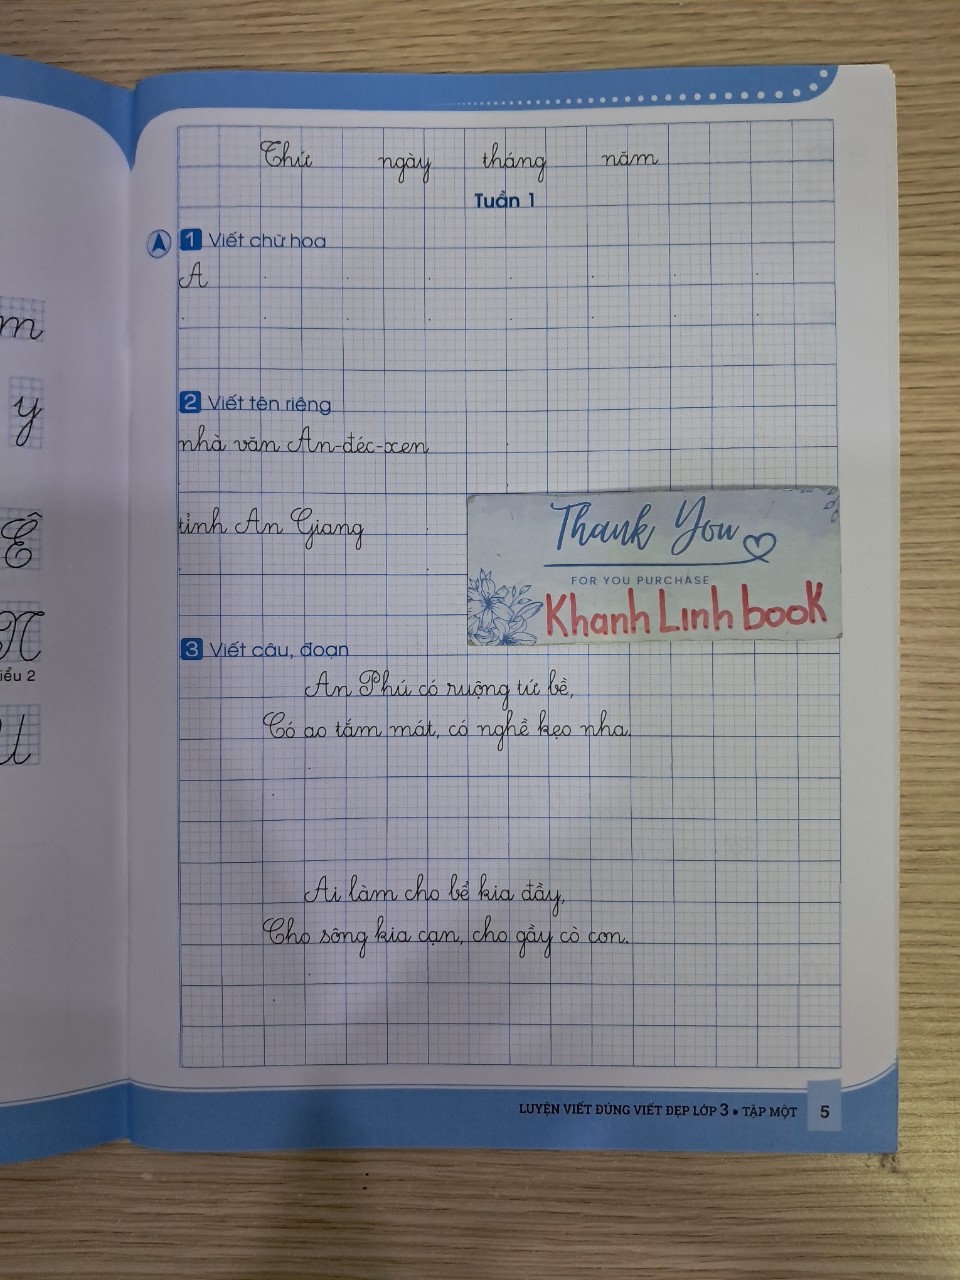 Thứ ngày tháng năm
Tuần 1
A 1 Viết chữ hoa
A
m
2 Viết tên riêng
y
nhà văn An-đéc-xen
tỉnh An Giang
Ê
Thank You
FOR YOU PURCHASE
Khanh Linh book
N
3 Viết câu, đoạn
iểu 2
An Phú có ruộng tứ bề,
Có ao tắm mát, có nghề kẹo nha.
Ai làm cho bể kia đầy,
Cho sông kia cạn, cho gầy cò con.
LUYỆN VIẾT ĐÚNG VIẾT ĐẸP LỚP 3 • TẬP MỘT 5